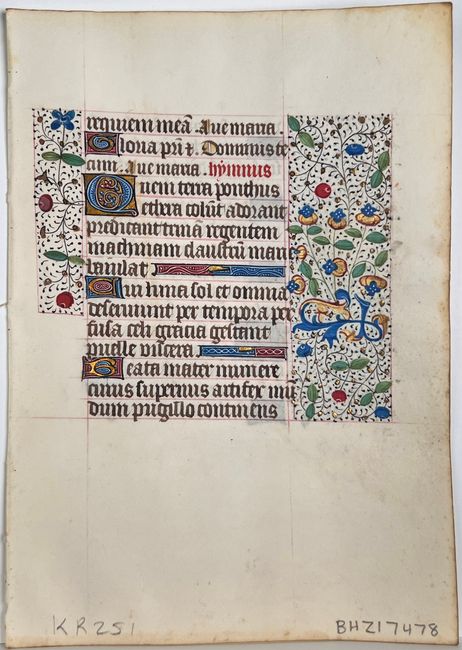 requiem meā Aue maria
Gloria pr̄i ⁊. Dominus te
cum. Aue maria. hymnus
Quem terra ponthus
ethera colūt adorant
predicant trinā regentem
machinam claustrū marie
baiulat
Cui luna sol et omnia
deseruiunt per tempora per
fusa celi gracia gestant
puelle viscera
Beata mater munere
cuius supernus artifex mū
dum pugillo continens
KR251
BHZ17478